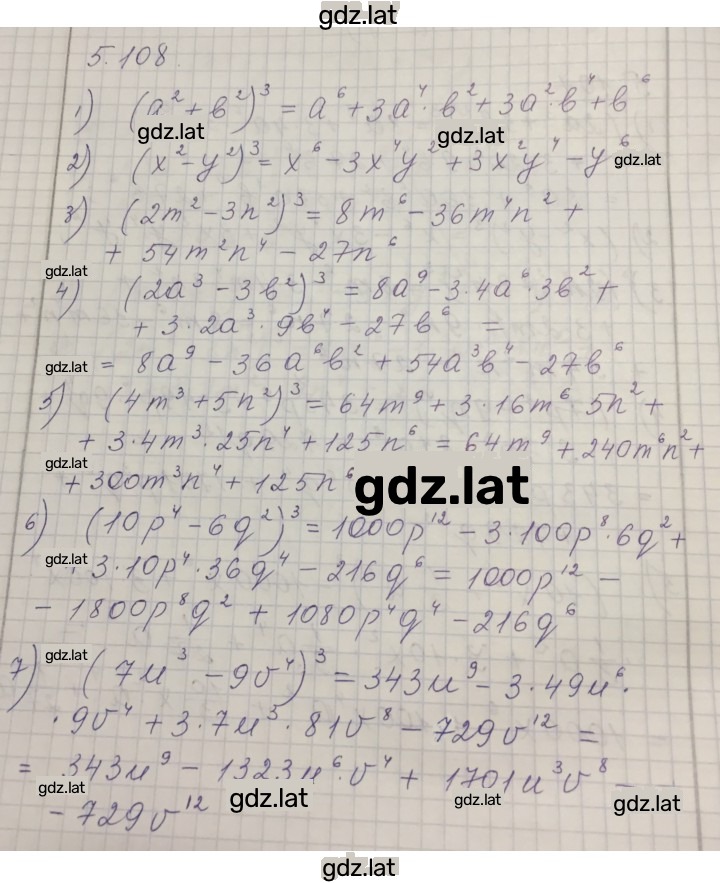 gdz.lat
5.108
1) (a² + b²)³ = a⁶ + 3a⁴ · b² + 3a² · b⁴ + b⁶
gdz.lat gdz.lat
2) (x² - y²)³ = x⁶ - 3x⁴y² + 3x²y⁴ - y⁶ gdz.lat
3) (2m² - 3n²)³ = 8m⁶ - 36m⁴n² +
+ 54m²n⁴ - 27n⁶
gdz.lat
4) (2a³ - 3b²)³ = 8a⁹ - 3·4a⁶·3b² +
+ 3·2a³·9b⁴ - 27b⁶ =
gdz.lat = 8a⁹ - 36a⁶b² + 54a³b⁴ - 27b⁶
5) (4m³ + 5n²)³ = 64m⁹ + 3·16m⁶ 5n² +
+ 3·4m³·25n⁴ + 125n⁶ = 64m⁹ + 240m⁶n² +
gdz.lat
+ 300m³n⁴ + 125n⁶ gdz.lat
6) (10p⁴ - 6q²)³ = 1000p¹² - 3·100p⁸·6q² +
gdz.lat
3·10p⁴·36q⁴ - 216q⁶ = 1000p¹² -
- 1800p⁸q² + 1080p⁴q⁴ - 216q⁶
gdz.lat
7) (7u³ - 9v⁴)³ = 343u⁹ - 3·49u⁶·
·9v⁴ + 3·7u³·81v⁸ - 729v¹² =
= 343u⁹ - 1323u⁶·v⁴ + 1701u³v⁸ -
gdz.lat gdz.lat gdz.lat gdz.lat
- 729v¹²
gdz.lat